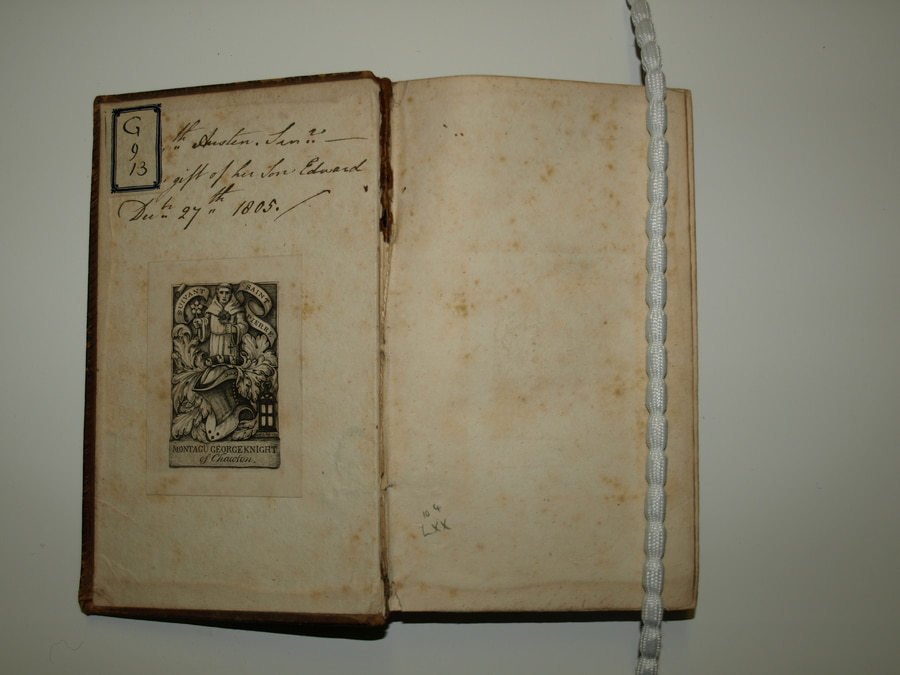 G
9
13
th Austen. Senr. —
gift of her Son Edward
27th 1805.
SUIVANT SAINT PIERRE
MONTAGU GEORGE KNIGHT
of Chawton.
10 4
LXX